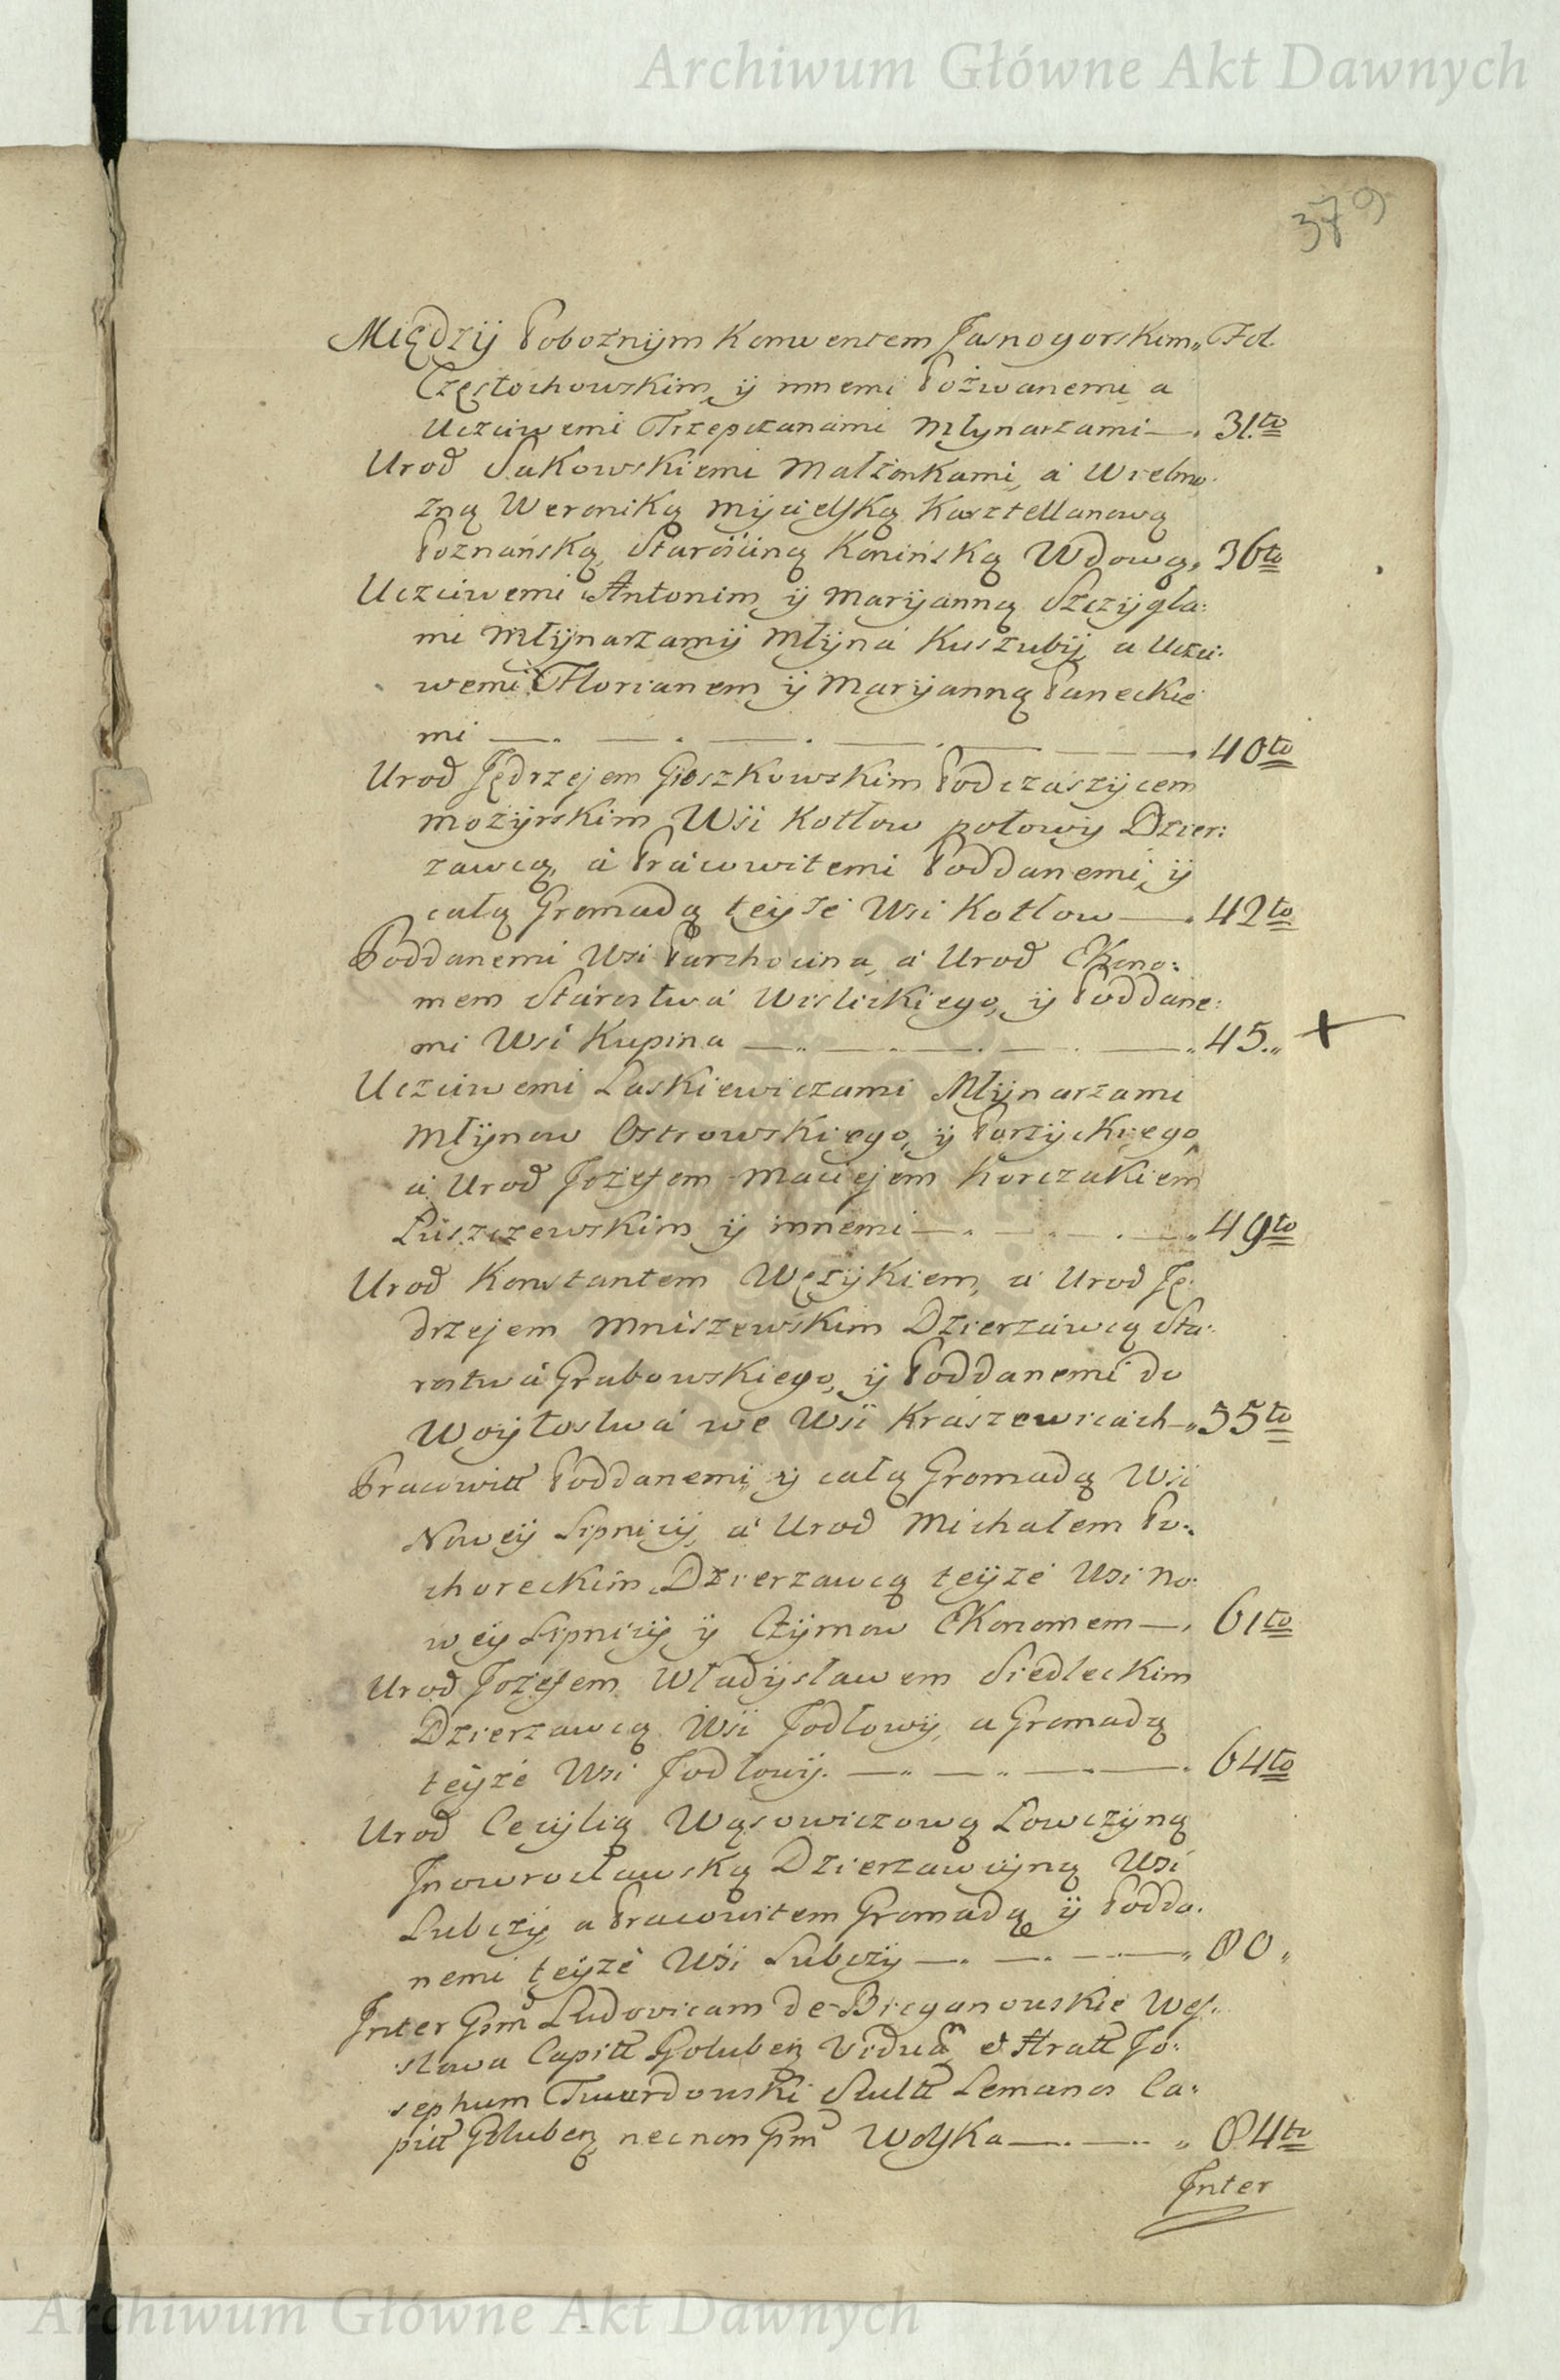 Archiwum Główne Akt Dawnych
379
Międzÿ Poboznÿm Konwentem Jasnogorskim„ Fol.
Częstochowskim, ÿ innemi Pozwanemi a
Uczciwemi Trzepizanami Młynarzami —. 31.to
Urod Sukowskiemi Małżonkami, a Wielmo:
zną Weroniką Mÿcielską Kasztellanową
Poznańską, Starościną Konińską Wdową, 36to
Uczciwemi Antonim ÿ Marÿanną Szczÿgła:
mi Młÿnarzamÿ Młÿna Kuszubÿ, a Uczci:
wemi Florianem ÿ Marÿanną Paneckie
mi —. — . — . — . — — . 40to
Urod Jędrzejem Głoszkowskim Podczaszÿcem
Mozÿrskim Wsi Kotłow połowÿ Dzier:
zawcą, a Pracowitemi Poddanemi, ÿ
całą Gromadą teÿże Wsi Kotłow —. 42to
Poddanemi Wsi Parchocina, a Urod Ekono:
mem Starostwa Wislickiego, ÿ Poddane:
mi Wsi Kupina — . — . — . — „ 45.„ +
Uczciwemi Laskiewiczami Młÿnarzami
Młÿnow Ostrowskiego, ÿ Parzÿckiego,
a Urod Jozefem Maciejem Korczakiem
Liszczewskim ÿ innemi — . — . — . — „ 49to
Urod Konstantem Węzÿkiem, a Urod Ję:
drzejem Mniszewskim Dzierzawcą Sta:
rostwa Grabowskiego, ÿ Poddanemi do
Woÿtostwa we Wsi Kraszewicach —„ 55to
Pracowitt Poddanemi, ÿ całą Gromadą Wsi
Noweÿ Lipnicÿ, a Urod Michałem Pu:
choreckim, Dzierzawcą teÿże Wsi No:
weÿ Lipnicÿ, ÿ Czÿrnow Ekonomem —. 61to
Urod Jozefem Władÿsławem Siedleckim
Dzierzawcą Wsi Jodłowÿ, a Gromadą
teÿże Wsi Jodłowÿ. —. — „ — . — . 64to
Urod Cecÿlią Wąsowiczową Łowczÿną
Jnowrocławską Dzierzawcÿną Wsi
Lubczÿ, a Pracowitem Gromadą ÿ Podda:
nemi teÿże Wsi Lubczÿ —. —. — . — „ 80„
Inter Gsm Ludovicam de Bieganouskie Wes:
sława Capitt Golubeꝫ Viduam et Hratt Jo:
sephum Twardouski Scultt Lemanos Ca:
pitt Golubeꝫ necnon Gsm Wolska —. —. „ 84to
Inter
Archiwum Główne Akt Dawnych